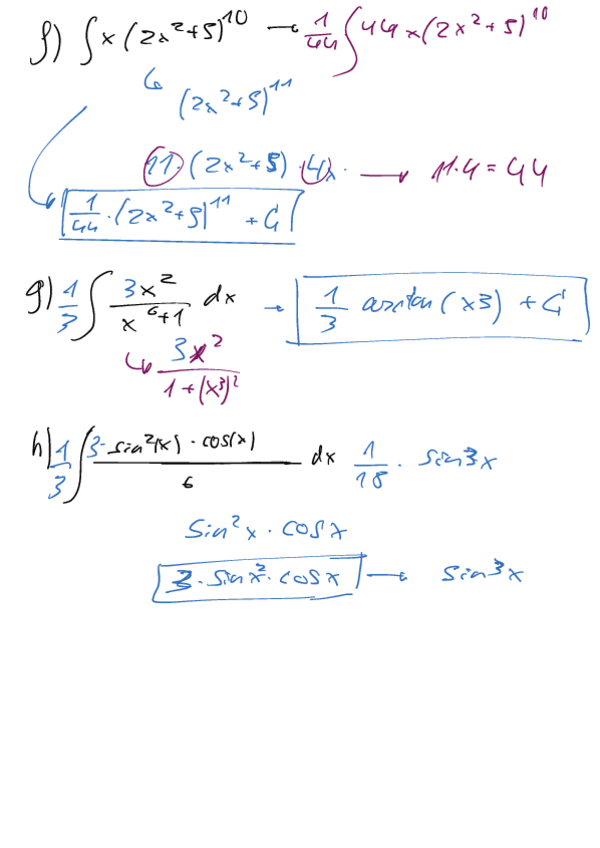 f) ∫ x (2x²+5)¹⁰ → 1/44 ∫ 44x (2x²+5)¹⁰
↳ (2x²+5)¹¹
11 · (2x²+5) · 4x · → 11·4 = 44
1/44 · (2x²+5)¹¹ + C
g) 1/3 ∫ 3x² / (x⁶+1) dx → 1/3 arctan (x3) + C
↳ 3x² / 1+(x³)²
h) 1/3 ∫ 3· sin²(x) · cos(x) / 6 dx 1/18 · sin³x
sin²x · cosx
3 · sinx² · cosx → sin³x